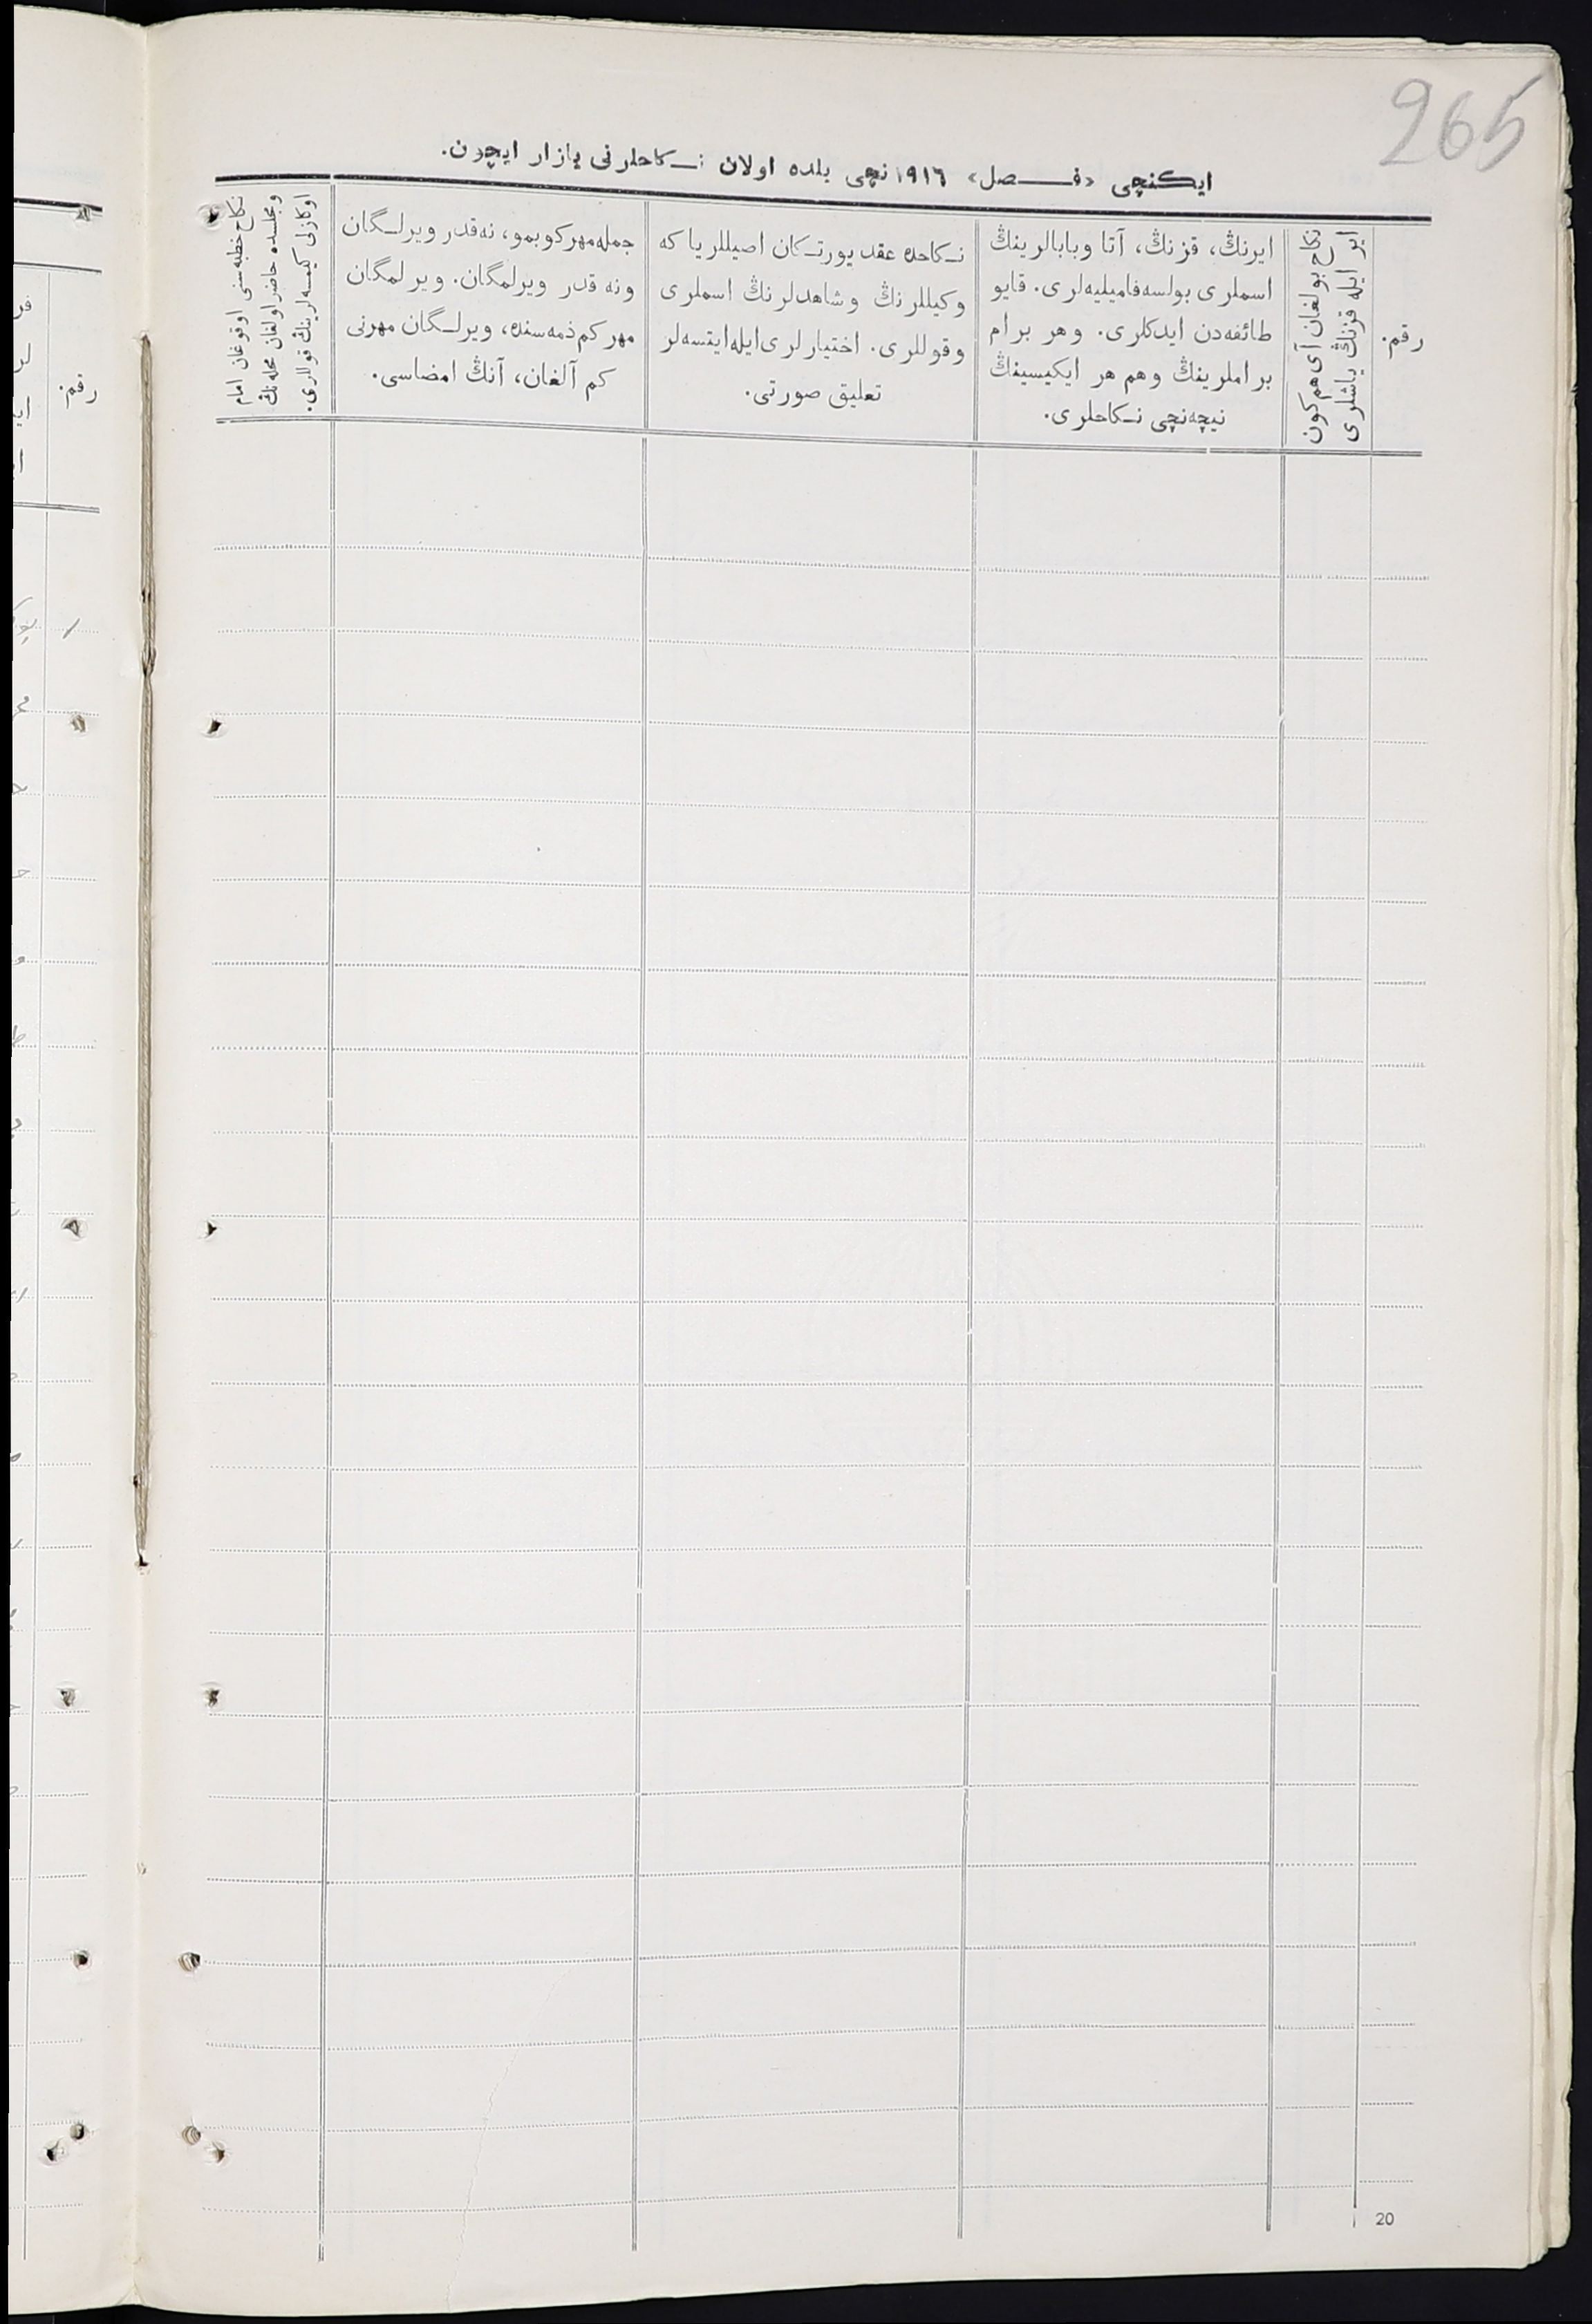 265
ایكنچی «فـــصل» ١٩١٦ نچی یلده اولان نـكاحلرنی یازار ایچون.
رقم.
نكاح بولغان آی هم كون
ایر ایله قزنڭ یاشلری
ایرنڭ، قزنڭ، آتا وبابالرینڭ
اسملری بولسه فامیلیه‌لری. قایو
طائفه‌دن ایدكلری. وهر برام
براملرینڭ وهم هر ایكیسینڭ
نیچه‌نچی نـكاحلری.
نـكاحده عقد یورتـكان اصیللر یا كه
وكیللرنڭ وشاهدلرنڭ اسملری
وقوللری. اختیارلری ایله ایتسه‌لر
تعلیق صورتی.
جمله مهر كوبمو، نه‌قدر ویرلـگان
ونه قدر ویرلمگان. ویرلمگان
مهر كم ذمه‌سنده، ویرلـگان مهرنی
كم آلغان، آنڭ امضاسی.
نكاح خطبه‌سنی اوقوغان امام
ومجلسده حاضر اولغان محله‌نڭ
اوكازلی كیمسه‌لرینڭ قوللری.
20
رقم.